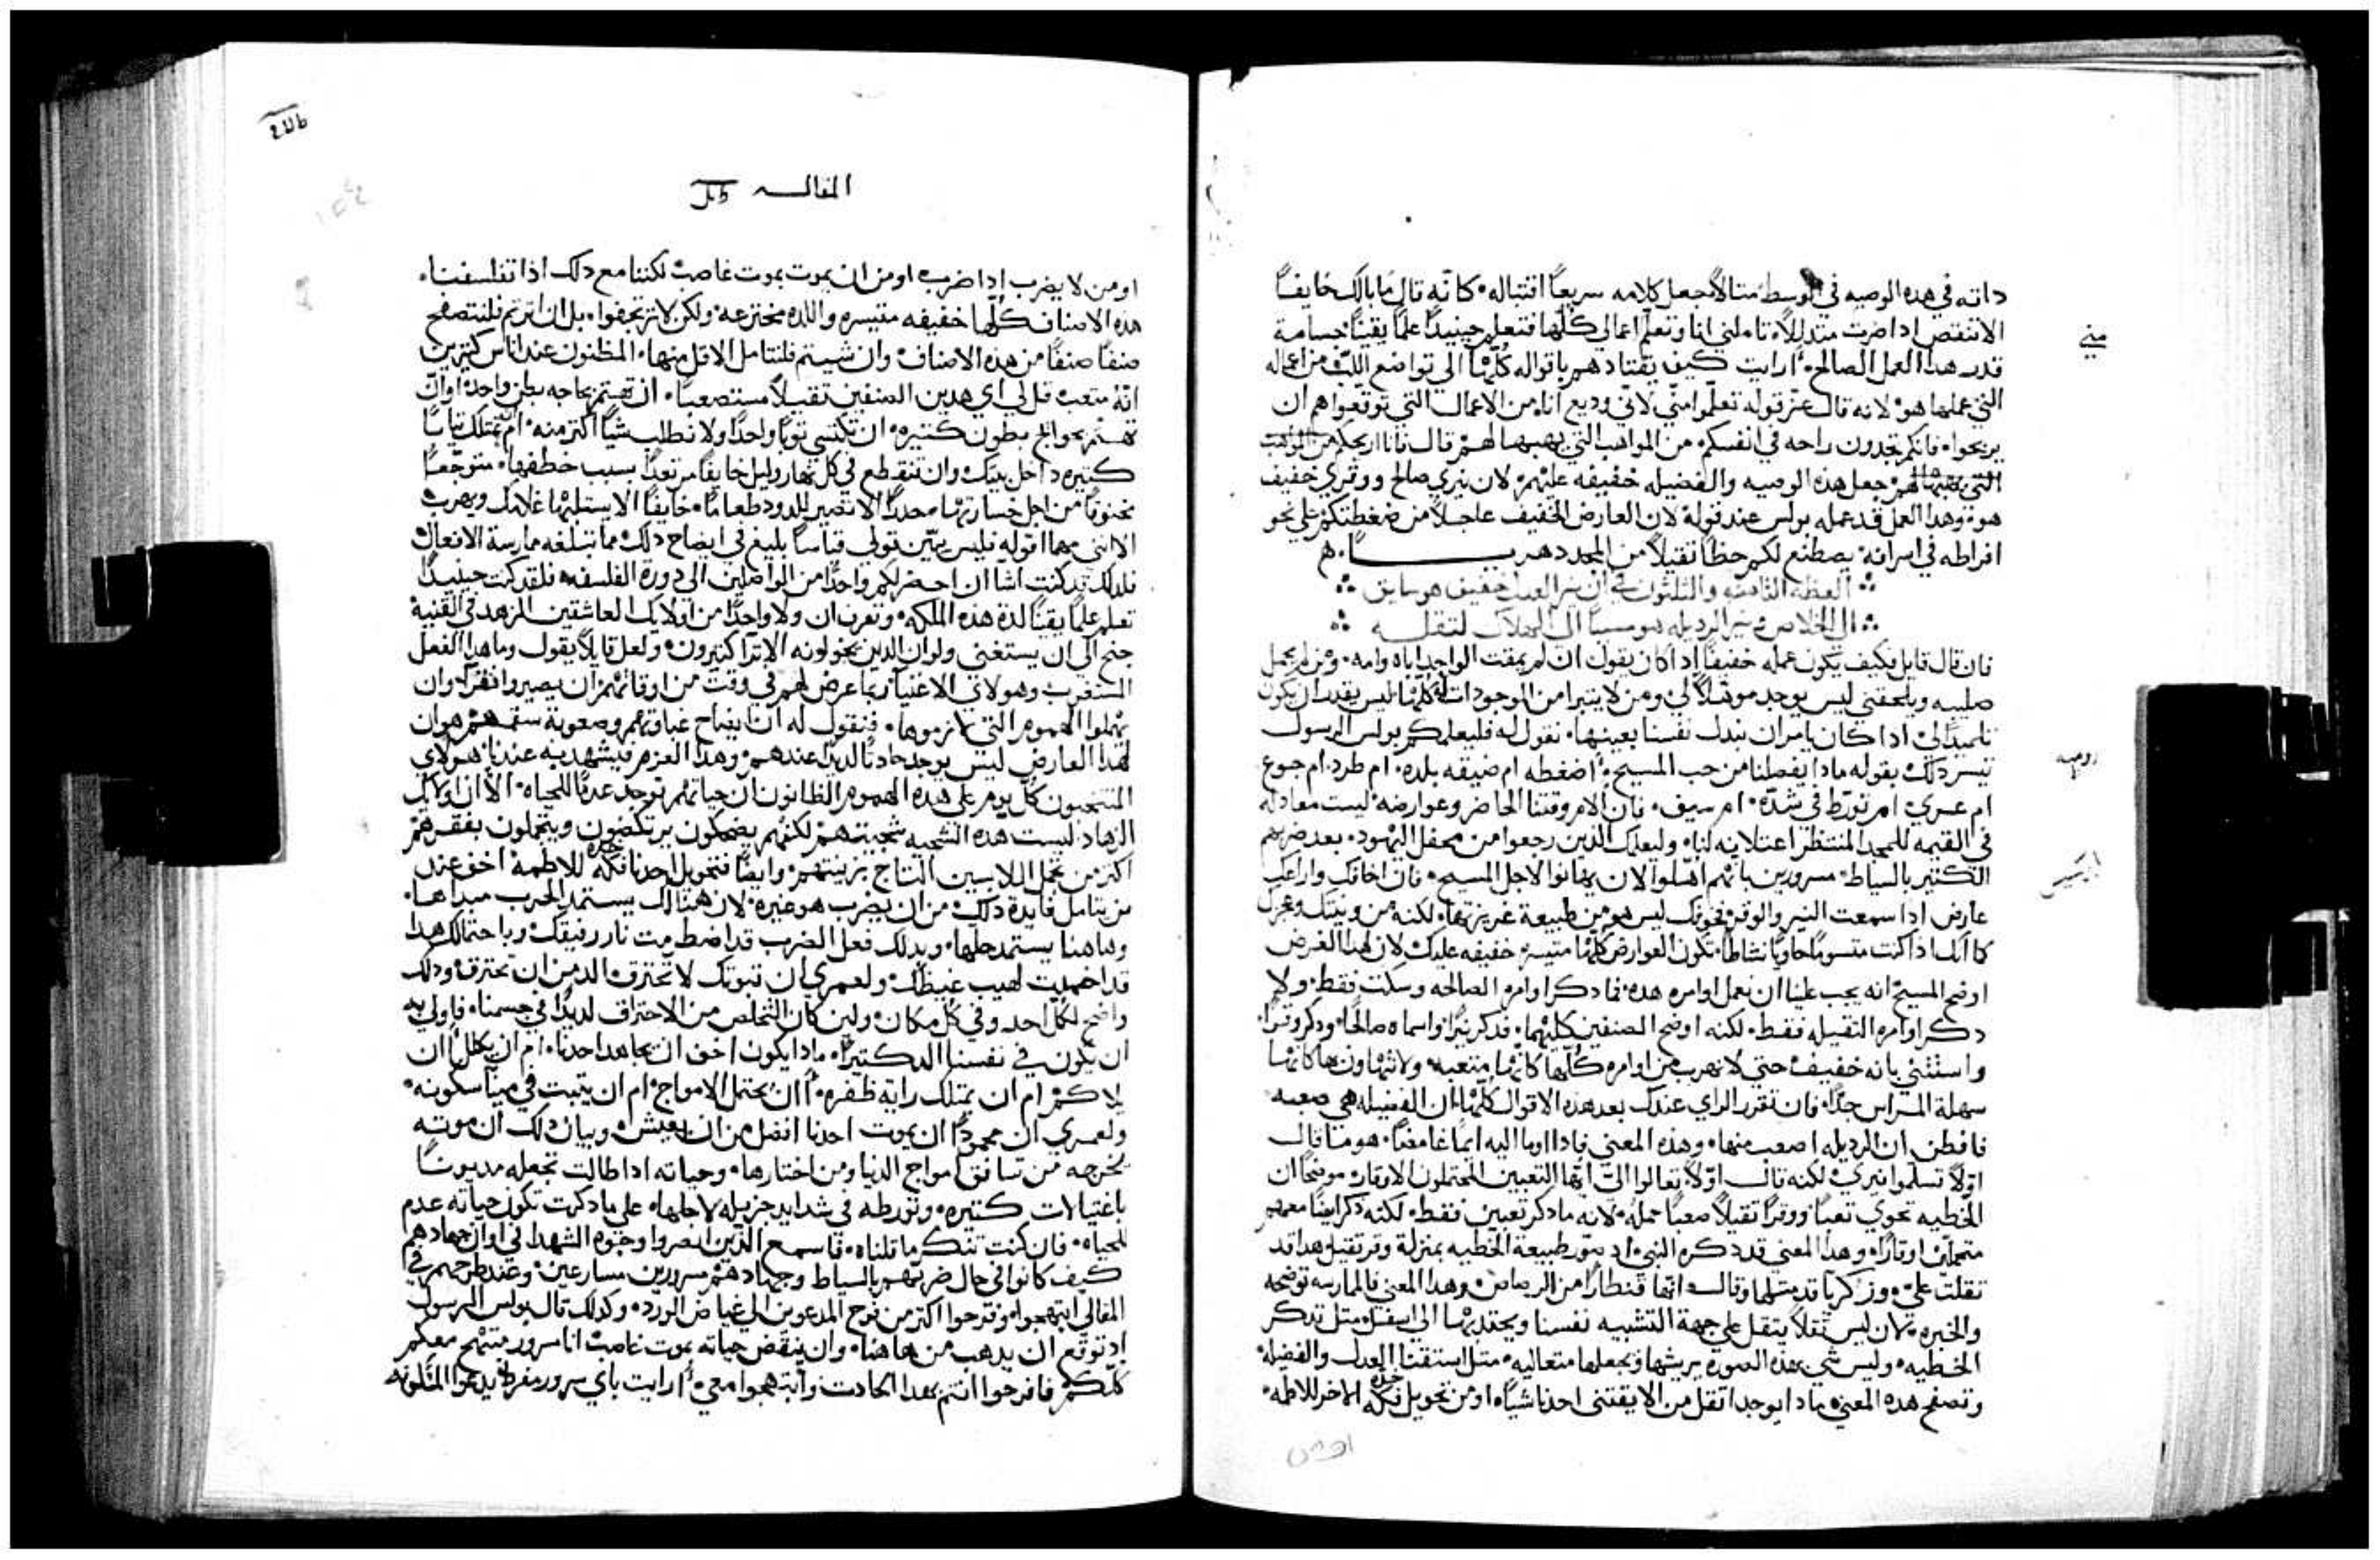 داته في هده الوصيه في الوسط متالاً جعل كلامه سريعاً اقتباله كانه قال ما بالك خايفاً
الا تنتقص ادا ضرت متدللاً تاملني انا وتعلم اعمالي كلها فتعلم حينيداً علماً يقيناً جسامة
متي
قدر هدا العمل الصالح أرايت كيف يقتادهم باقواله كلها الي تواضع اللب من اعماله
التي عملها هو لانه قال عند قوله تعلموا مني لاني وديع انا ومن الاعمال التي توقعوا هم ان
يربحوا فانكم تجدون راحه في انفسكم من المواهب التي يهبها لهم قال فانا اريحكم من المواهب
التي يهبها لهم جعل هده الوصيه والفضيله خفيفه عليهم لان نيري صالح ووقري خفيف
هو وهدا العمل قد عمله بولس عند قوله لان العارض الخفيف عاجلاً من ضغطتكم علي نحو
افراطه في اسرافه يصطنع لكم حظاً تقيلاً من المجد دهرياً
العظه التامنه والتلتون في ان نير العدل خفيف هو سايق
الي الخلاص ونير الرديله هو مسبباً الي الهلاك لتقله
فان قال قايل فكيف يكون عمله خفيفاً ادا كان يقول ان لم يمقت الواحد اباه وامه ومن لم يحمل
صليبه ويلحقني ليس يوجد موهلاً لي ومن لا يتبرا من الموجودات له كلها ليس يقدر ان يكون
تلميداً لي ادا كان يامر ان نبدل نفسنا بعينها نقول له فليعلمكم بولس الرسول
روميه
تيسر دلك بقوله مادا يفصلنا من حب المسيح أضغطه ام ضيقه بلده ام طرد ام جوع
ام عري ام تورط في شدة ام سيف فان الام وقتنا الحاضر وعوارضه ليست معادله
في القيمه للمجد المنتظر اعتلانه لنا وليعلمك الدين رجعوا من محفل اليهود بعد ضربهم
ابركسيس
الكتير بالسياط مسرورين بانهم اهلوا لان يهانوا لاجل المسيح فان اخافك وارعبك
عارض ادا سمعت النير والوقر فخوفك ليس هو من طبيعة غريزتها لكنه من ونيتك وعجزك
كما انك ادا كنت متسوماً حاوياً نشاطاً تكون العوارض كلها متيسره خفيفه عليك لان لهدا الغرض
اوضح المسيح انه يجب علينا ان نعمل اوامره هده فما دكر اوامره الصالحه وسكت فقط ولا
دكر اوامره التقيله فقط لكنه اوضح الصنفين كليهما فدكر نيراً واسماه صالحاً ودكر وقراً
واستثني بانه خفيف حتي لا نهرب من اوامره كلها كانها متعبه ولا نتهاون بها كانها
سهلة المراس جداً فان تقرر الراي عندك بعد هده الاقوال كلها ان الفضيله هي صعبه
فافطن ان الرديله اصعب منها وهده المعني فادا اوما اليه ايماً غامضاً هو ما قال
اولاً تسلموا نيري لكنه قال اولاً تعالوا الي ايها التعبين المحتملون الاوقار موضحاً ان
الخطيه تحوي تعباً ووقراً تقيلاً صعباً حمله لانه ما دكر تعبين فقط لكنه دكر ايضاً معهم
متحملين اوقاراً وهدا المعني قد دكره النبي اد يتور طبيعة الخطيه بمنزلة وقر تقيل هدا قد
تقلت علي وزكريا قد متلها وقال انها قنطاراً من الرصاص وهدا المعني فالممارسه توضحه
والخبره لان ليس ثقلاً يتقل علي جهة التشبيه نفسنا ويجتدبها الي اسفل متل تدكر
الخطيه وليس شي بهده الصوره يريشها ويجعلها متعاليه متل استقنا العدل والفضيله
وتصفح هده المعني مادا يوجد اتقل من الا يقتني احدنا شياً او من تحويل فكه خده الاخر للاطمه
المقاله
او من لا يضرب ادا ضرب او من ان يموت بموت غاصب لكننا مع دلك ادا تفلسفنا
هده الاصناف كلها خفيفه متيسره واللده مخترعه ولكن لا ترتجفوا بل ان اترتم فلنتصفح
صنفاً صنفاً من هده الاصناف وان شيتم فلنتامل الاقل منها المظنون عند اناس كتيرين
انه متعب قل لي اي هدين الصنفين تقيلاً مستصعباً ان تهتم بحاجه بطن واحد او ان
تهتم بحوايج بطون كتيره ان تكتسي توباً واحداً ولا تطلب شياً اكتر منه ام تمتلك تياباً
كتيره داخل بيتك وان تنقطع في كل نهار وليل خايفاً مرتعداً بسبب حفظها متوجعاً
مخنوقاً من اجل خسارتها حدراً الا تصير للدود طعاماً خايفاً الا يستلبها غلامك ويهرب
الا انني مهما اقوله فليس يبين قولي قياساً بليغ في ايضاح دلك مما تبلغه ممارسة الافعال
فلدلك قد كنت اشا ان احضر لكم واحداً من الواصلين الي دورة الفلسفه فلقد كنت حينيداً
تعلم علماً يقيناً لدة هده الملكه وتعرف ان ولا واحداً من اولايك العاشقين الزهد في القنية
جنح الي ان يستغني ولو ان الدين يخولونه الاترا كتيرون ولعل قايلاً يقول وما هدا الفعل
المستغرب وهولاي الاغنيا ربما عرض لهم في وقت من اوقاتهم ان يصيروا فقرا وان
يهملوا الهموم التي لازموها فنقول له ان ايضاح غباوتهم وصعوبة سقمهم هو ان
لهدا العارض ليس يوجد حادتاً لديداً عندهم وهدا العزم فيشهد به عندنا هولاي
المنتحبون كل يوم علي هده الهموم الظانون ان حياتهم توجد عدماً للحياه الا ان اوليك
الزهاد ليست هده الشجيه شجيتهم لكنهم يضحكون يرتكضون ويتجملون بفقرهم
اكتر من تجمل اللابسين التاج بزينتهم وايضاً فتحويل احدنا فكه خده للاطمة اخف عند
من يتامل فايدة دلك من ان يضرب هو غيره لان هنالك يستمد الحرب مبداها
وهاهنا يستمد حلها وبدلك فعل الضرب قد اضطرمت نار رفيقك وباحتمالك هدا
قد اخمدت لهيب غيظك ولعمري ان تبوتك لا تحترق الد من ان تحترق ودلك
واضح لكل احد وفي كل مكان ولين كان التخلص من الاحتراق لديداً في جسمنا فاولي به
ان يكون في نفسنا الد كتيراً مادا يكون اخف ان يجاهد احدنا ام ان يكلل أان
يلاكم ام ان يمتلك راية ظفره أان يحتمل الامواج ام ان يتبت في مينا سكونه
ولعمري ان محموداً ان يموت احدنا افضل من ان يعيش وبيان دلك ان موته
يخرجه من تسافق امواج الدنيا ومن اختارها وحياته ادا طالت تجعله مديوناً
باغتيالات كتيره وتورطه في شدايد جزيله لاجلها علي ما دكرت تكون حياته عدم
للحياه فان كنت تنكر ما قلناه فاسمع الدين ابصروا وجوه الشهدا في اوان جهادهم
كيف كانوا في حال ضربهم بالسياط وجهادهم مسرورين مسارعين وعند طرحهم في
المقالي ابتهجوا وفرحوا اكتر من فرح المدعوين الي غياض الورد وكدلك قال بولس الرسول
اد توقع ان يدهب من هاهنا وان ينقض حياته بموت غاصب انا سرور مبتهج معكم
كلكم فافرحوا انتم بهدا الحادت وابتهجوا معي أرايت باي سرور مفرط يدعوا المسكونه